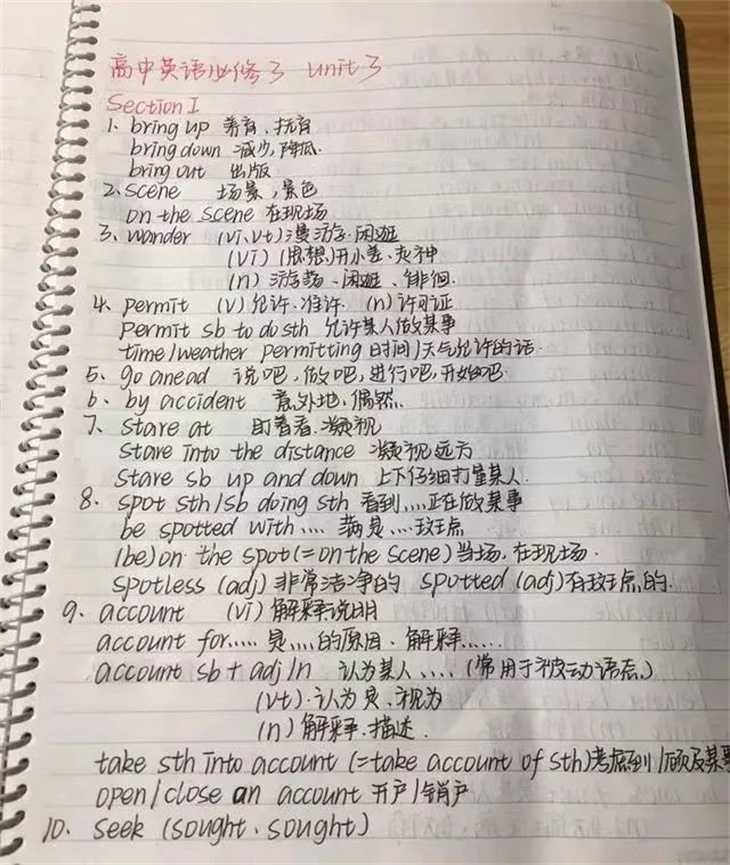 高中英语必修3 unit 3
Section I
1、bring up 养育、抚育
bring down 减少,降低.
bring out 出版
2、scene 场景,景色
on the scene 在现场
3、wander (vi、vt)漫游.闲逛
(vi) (思想)开小差、走神
(n) 游荡、闲逛、徘徊.
4、permit (v)允许.准许. (n)许可证
permit sb to do sth 允许某人做某事
time/weather permitting 时间/天气允许的话.
5、go ahead 说吧,做吧,进行吧,开始吧.
6、by accident 意外地,偶然.
7、stare at 盯着看.凝视
stare into the distance 凝视远方
stare sb up and down 上下仔细打量某人.
8、spot sth/sb doing sth 看到....正在做某事
be spotted with .... 满是....斑点
(be)on the spot(=on the scene)当场.在现场.
spotless (adj)非常洁净的 spotted (adj)有斑点的.
9、account (vi)解释说明
account for..... 是....的原因.解释......
account sb + adj/n 认为某人....(常用于被动语态.)
(vt).认为是.视为
(n)解释.描述.
take sth into account (=take account of sth)考虑到/顾及某事
open/close an account 开户/销户
10. seek (sought、sought)